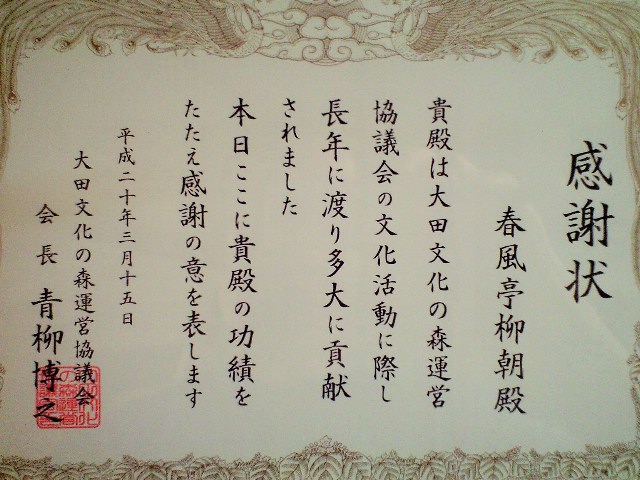 感謝状
春風亭柳朝殿
貴殿は大田文化の森運営
協議会の文化活動に際し
長年に渡り多大に貢献
されました
本日ここに貴殿の功績を
たたえ感謝の意を表します
平成二十年三月十五日
大田文化の森運営協議会
会長 青柳博之